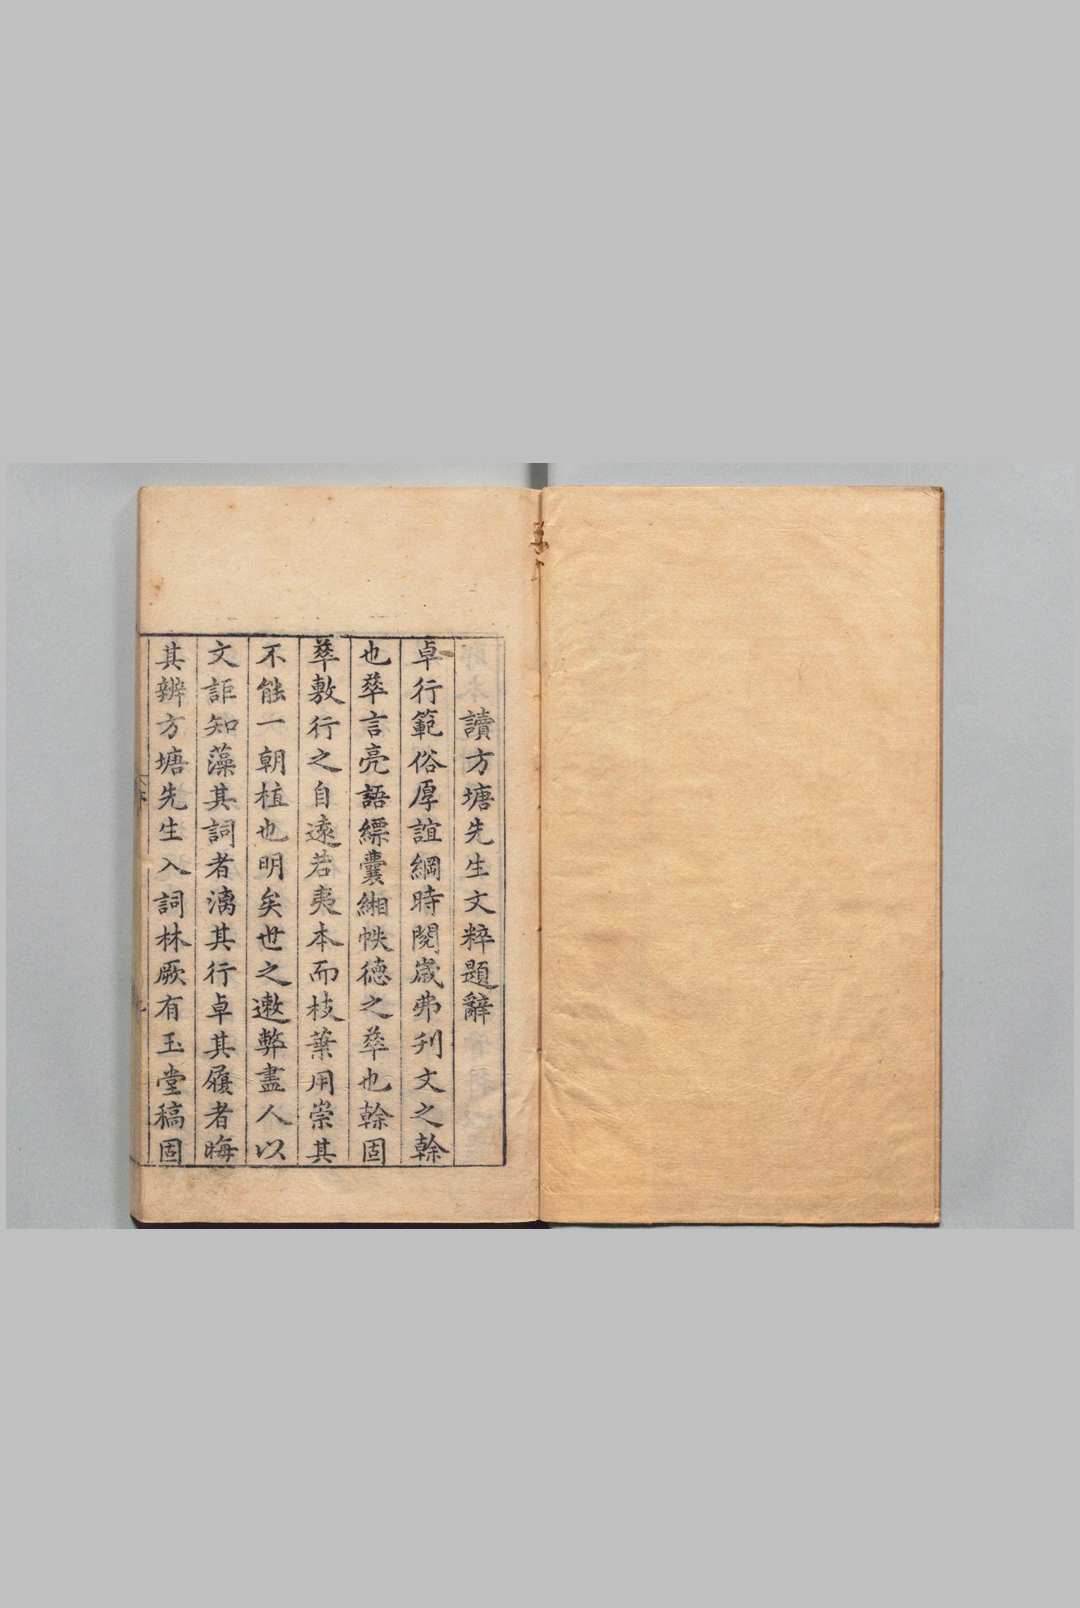 讀方塘先生文粹題辭
卓行範俗厚誼綱時閱歲弗刋文之榦
也萃言亮語縹囊緗帙德之萃也榦固
萃敷行之自遠若夷本而枝葉用崇其
不能一朝植也明矣世之遬弊盡人以
文詎知藻其詞者漓其行卓其履者晦
其辨方塘先生入詞林厥有玉堂稿固